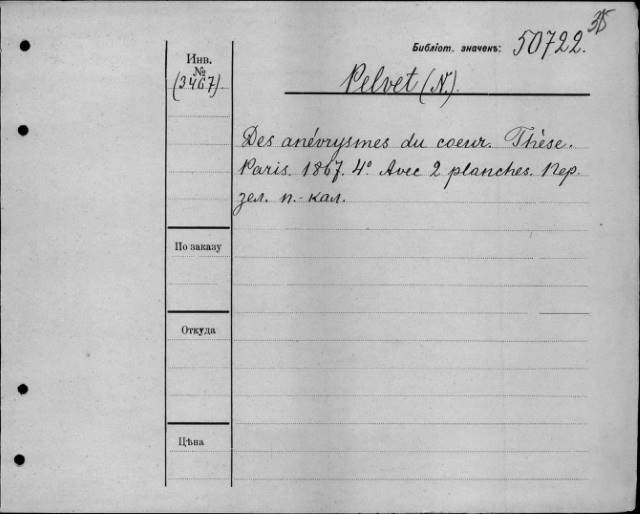 35
Библіот. значекъ: 50722.
Инв.
№
(3467)
Pelvet (N.)
Des anévrysmes du coeur. Thèse.
Paris. 1867. 4º Avec 2 planches. Пер.
зел. п.-кал.
По заказу
Откуда
Цѣна